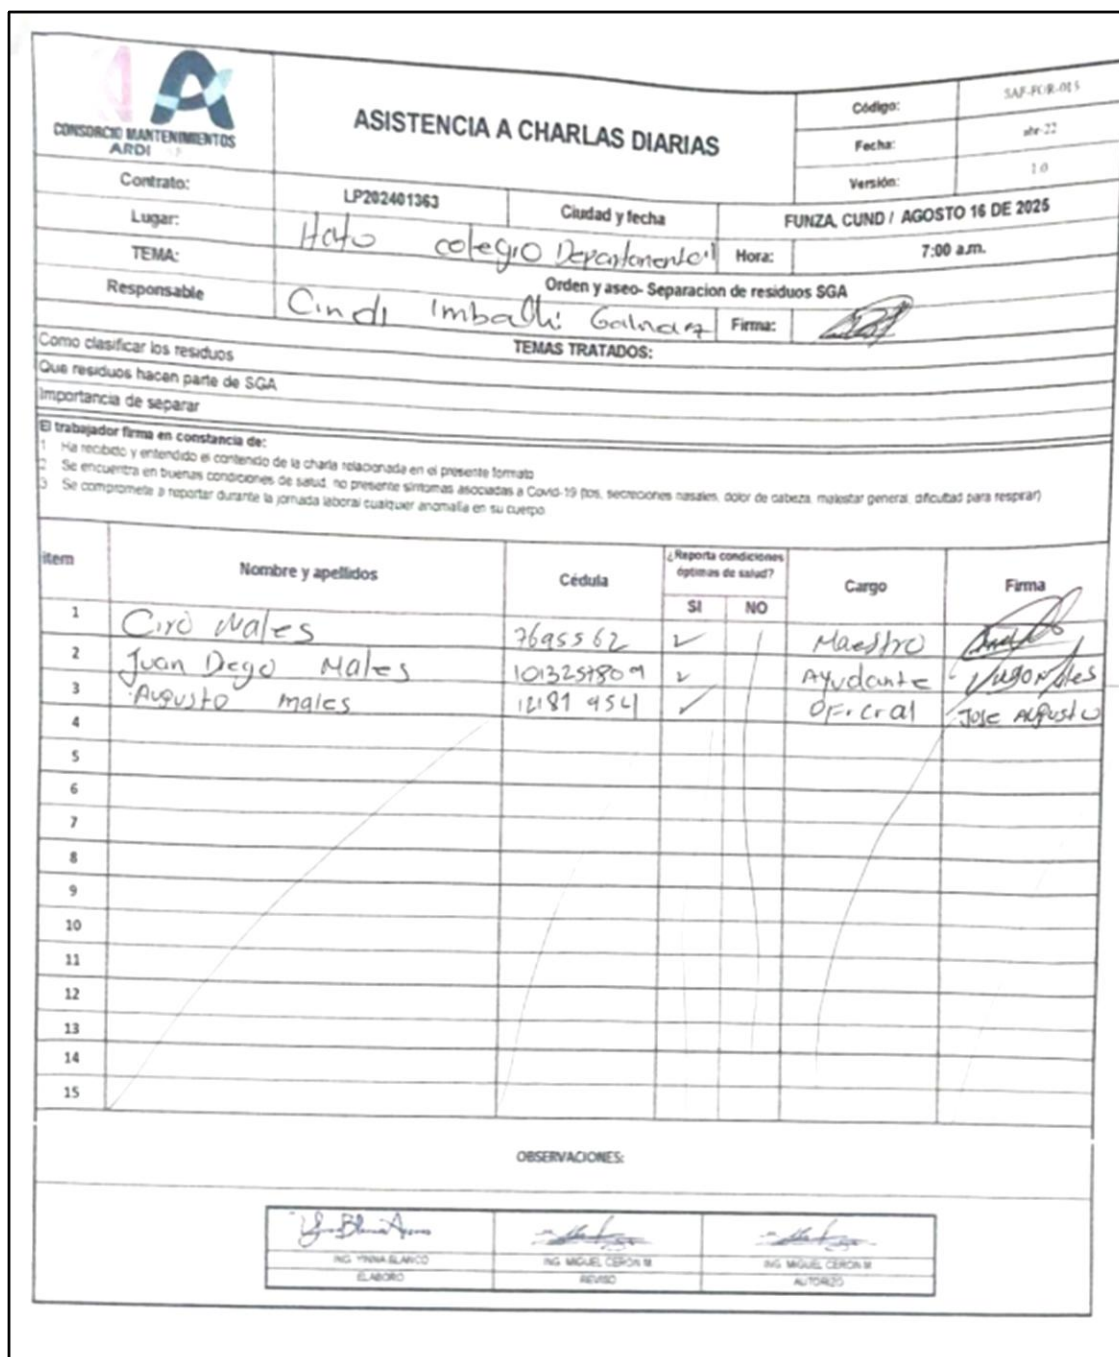 CONSORCIO MANTENIMIENTOS
ARDI
ASISTENCIA A CHARLAS DIARIAS
Código: SAF-FOR-015
Fecha: abr-22
Versión: 1.0
Contrato: LP202401363 Ciudad y fecha FUNZA, CUND / AGOSTO 16 DE 2025
Lugar: Hato colegio Departamental Hora: 7:00 a.m.
TEMA: Orden y aseo- Separacion de residuos SGA
Responsable Cindi Imbachi Firma:
TEMAS TRATADOS:
Como clasificar los residuos
Que residuos hacen parte de SGA
Importancia de separar
El trabajador firma en constancia de:
1 Ha recibido y entendido el contenido de la charla relacionada en el presente formato
2 Se encuentra en buenas condiciones de salud, no presente síntomas asociadas a Covid-19 (tos, secreciones nasales, dolor de cabeza, malestar general, dificultad para respirar)
3 Se compromete a reportar durante la jornada laboral cualquier anomalía en su cuerpo
item Nombre y apellidos Cédula ¿Reporta condiciones óptimas de salud? Cargo Firma
SI NO
1 Ciro Males 7695562 ✓ Maestro
2 Juan Diego Males ✓ Ayudante
3 Augusto males 12187954 ✓ Oficial Jose Augusto
4
5
6
7
8
9
10
11
12
13
14
15
OBSERVACIONES:
ING. YINNA BLANCO ING. MIGUEL CERON M ING. MIGUEL CERON M
ELABORO REVISO AUTORIZO